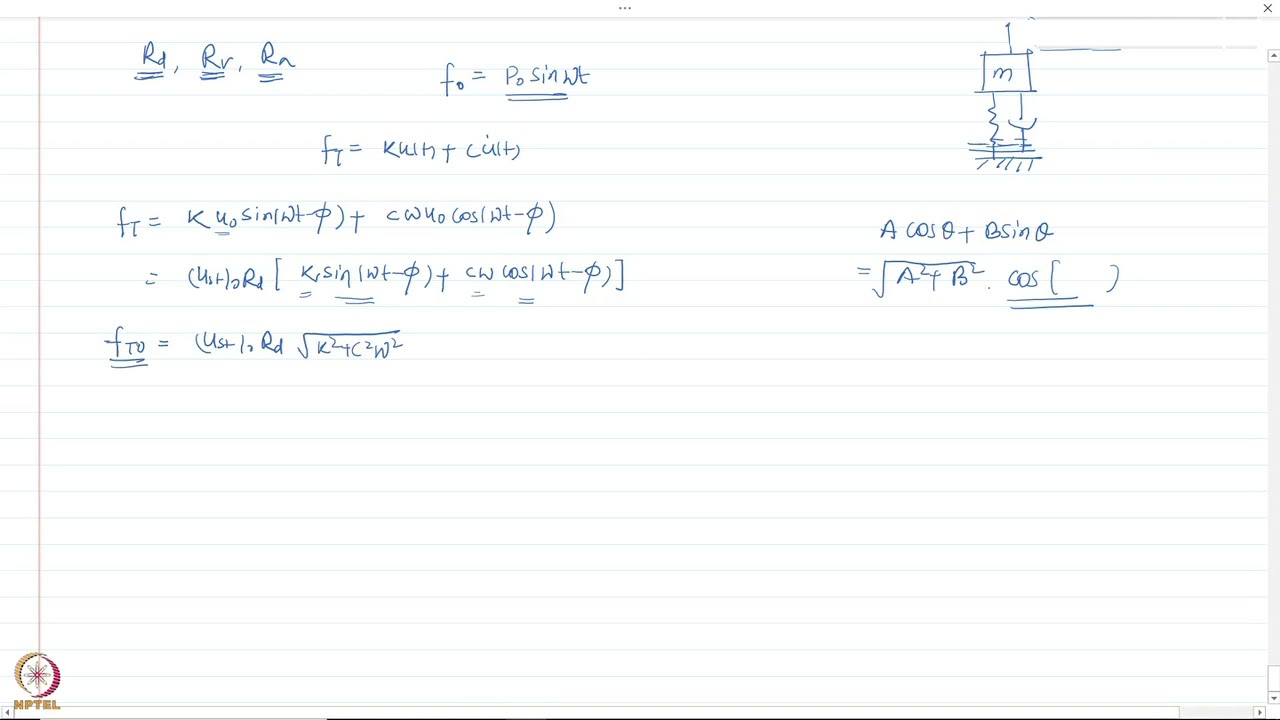 Rd, Rv, Ra
f₀ = P₀ sin ωt
m
fT = Ku(t) + Cu̇(t)
fT = K u₀ sin(ωt-φ) + cω u₀ cos(ωt-φ)
A cosθ + B sinθ
= (ust)₀ Rd [ K sin(ωt-φ) + cω cos(ωt-φ) ]
= √(A²+B²) . cos [ )
fT0 = (ust)₀ Rd √(K²+C²ω²)
NPTEL